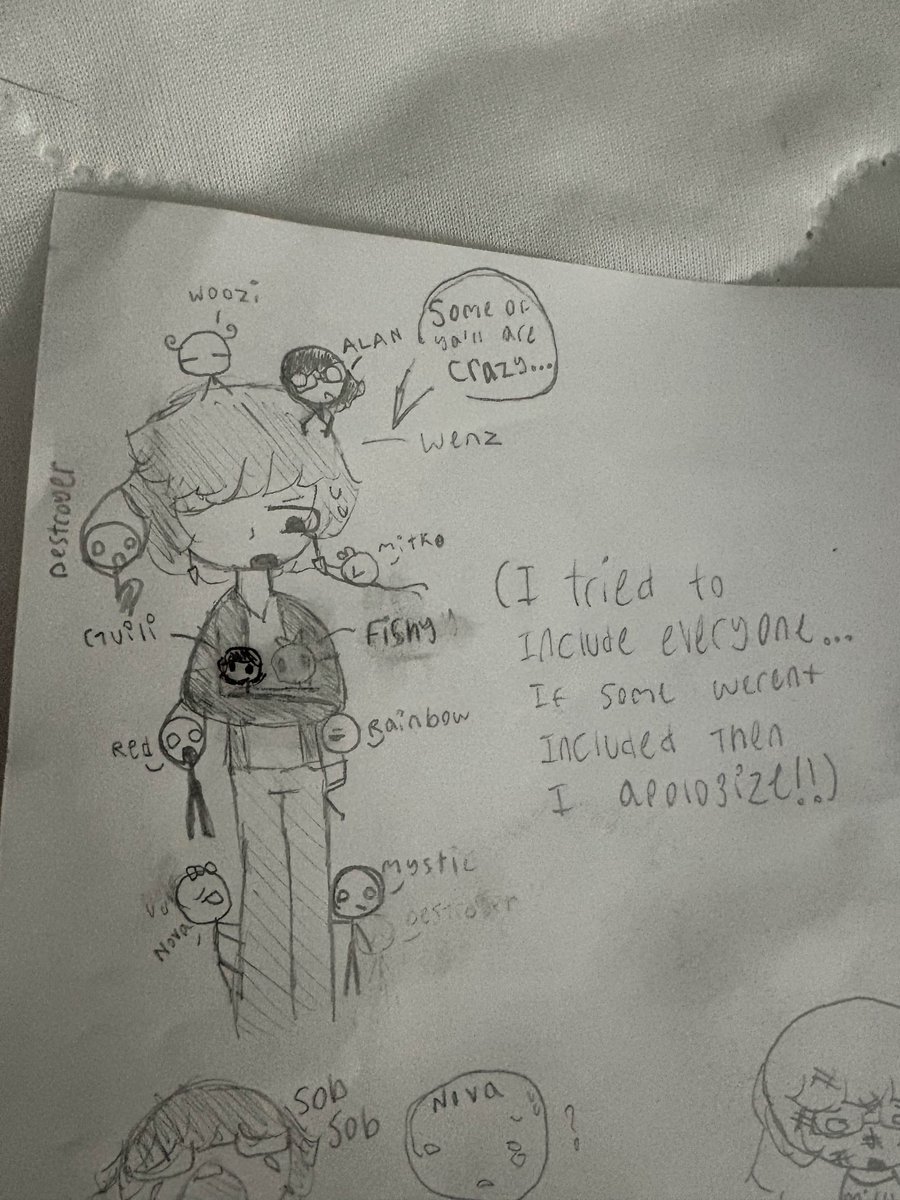 woozi
ALAN
Some of
ya'll are
crazy...
Wenz
Destroyer
mitko
Guili
Fishy
Red
Rainbow
mystic
Destroyer
Nova
(I tried to
Include everyone...
If some werent
Included Then
I apologize!!)
Sob
Sob
Niva
?